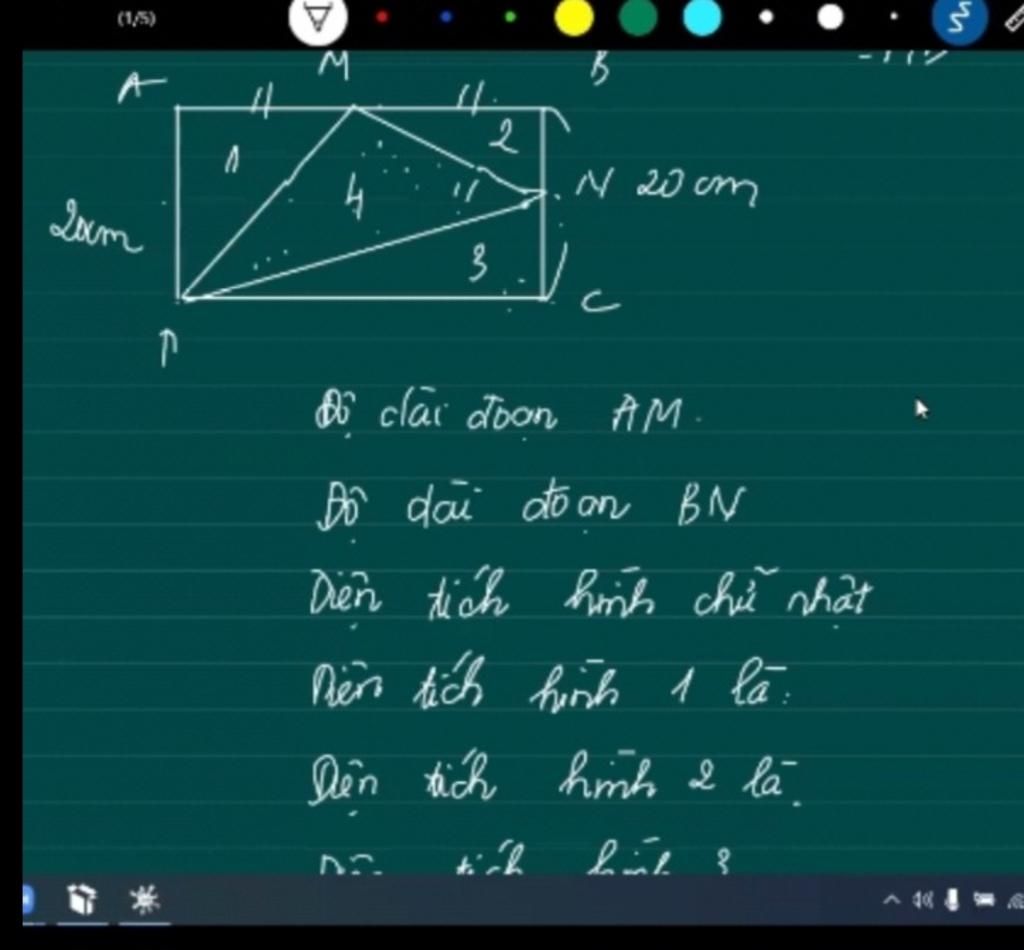 (1/5)
M B
A
1 2
4 N 20 cm
20cm
3
C
Độ dài đoạn AM.
Độ dài đoạn BN
Diện tích hình chữ nhật
Diện tích hình 1 là:
Diện tích hình 2 là.
tích hình 3